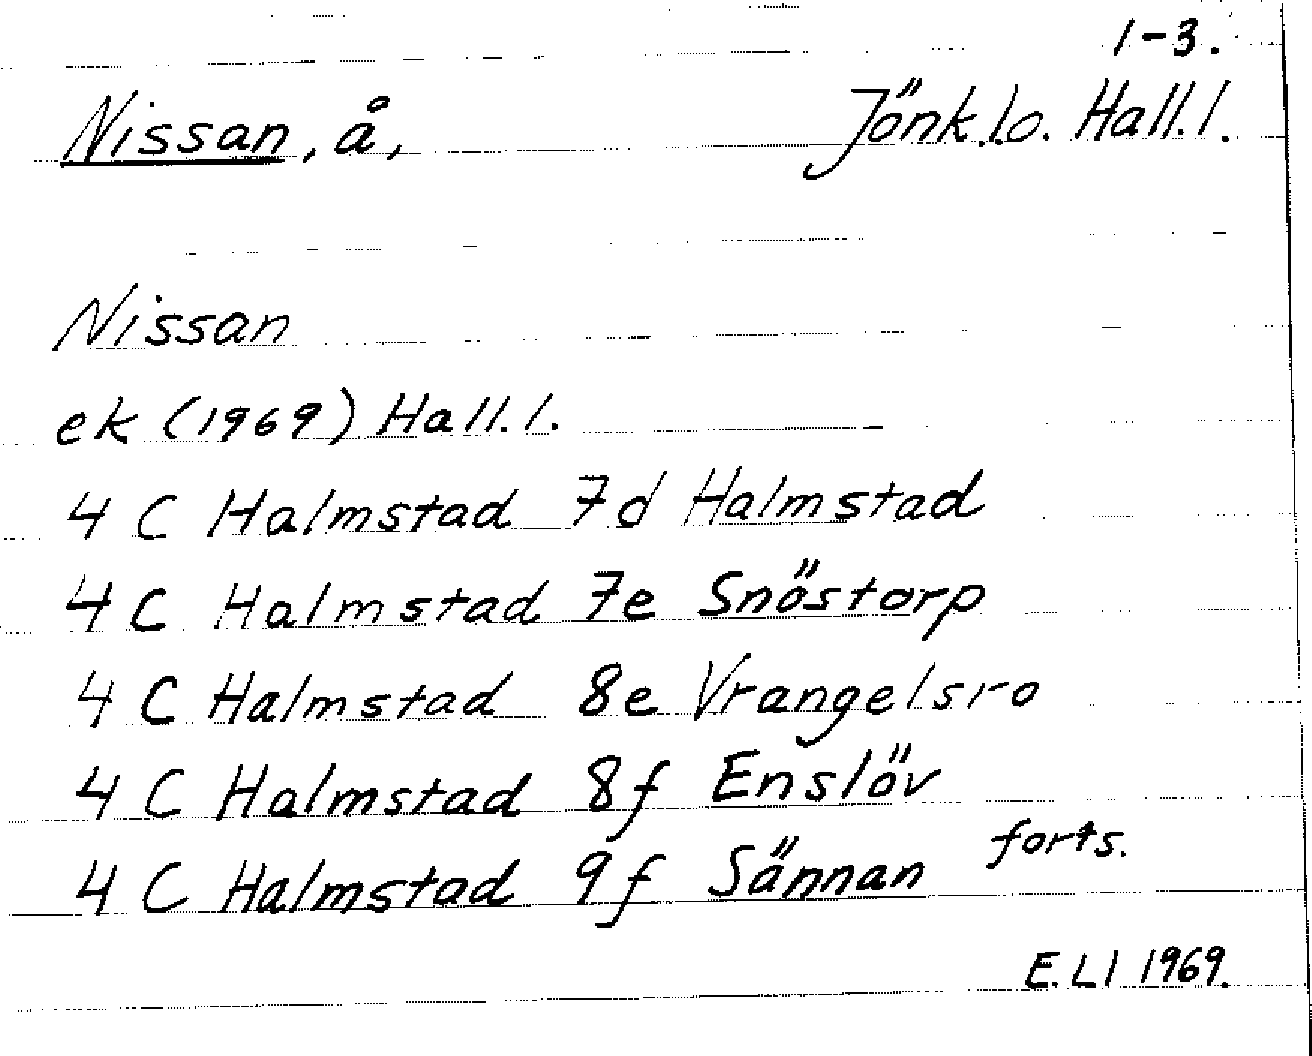 1-3.
Nissan, å, Jönk.lo. Hall.l.
Nissan
ek (1969) Hall.l.
4 C Halmstad 7d Halmstad
4 C Halmstad 7e Snöstorp
4 C Halmstad 8e Vrangelsro
4 C Halmstad 8f Enslöv
4 C Halmstad 9f Sännan forts.
E.LI 1969.